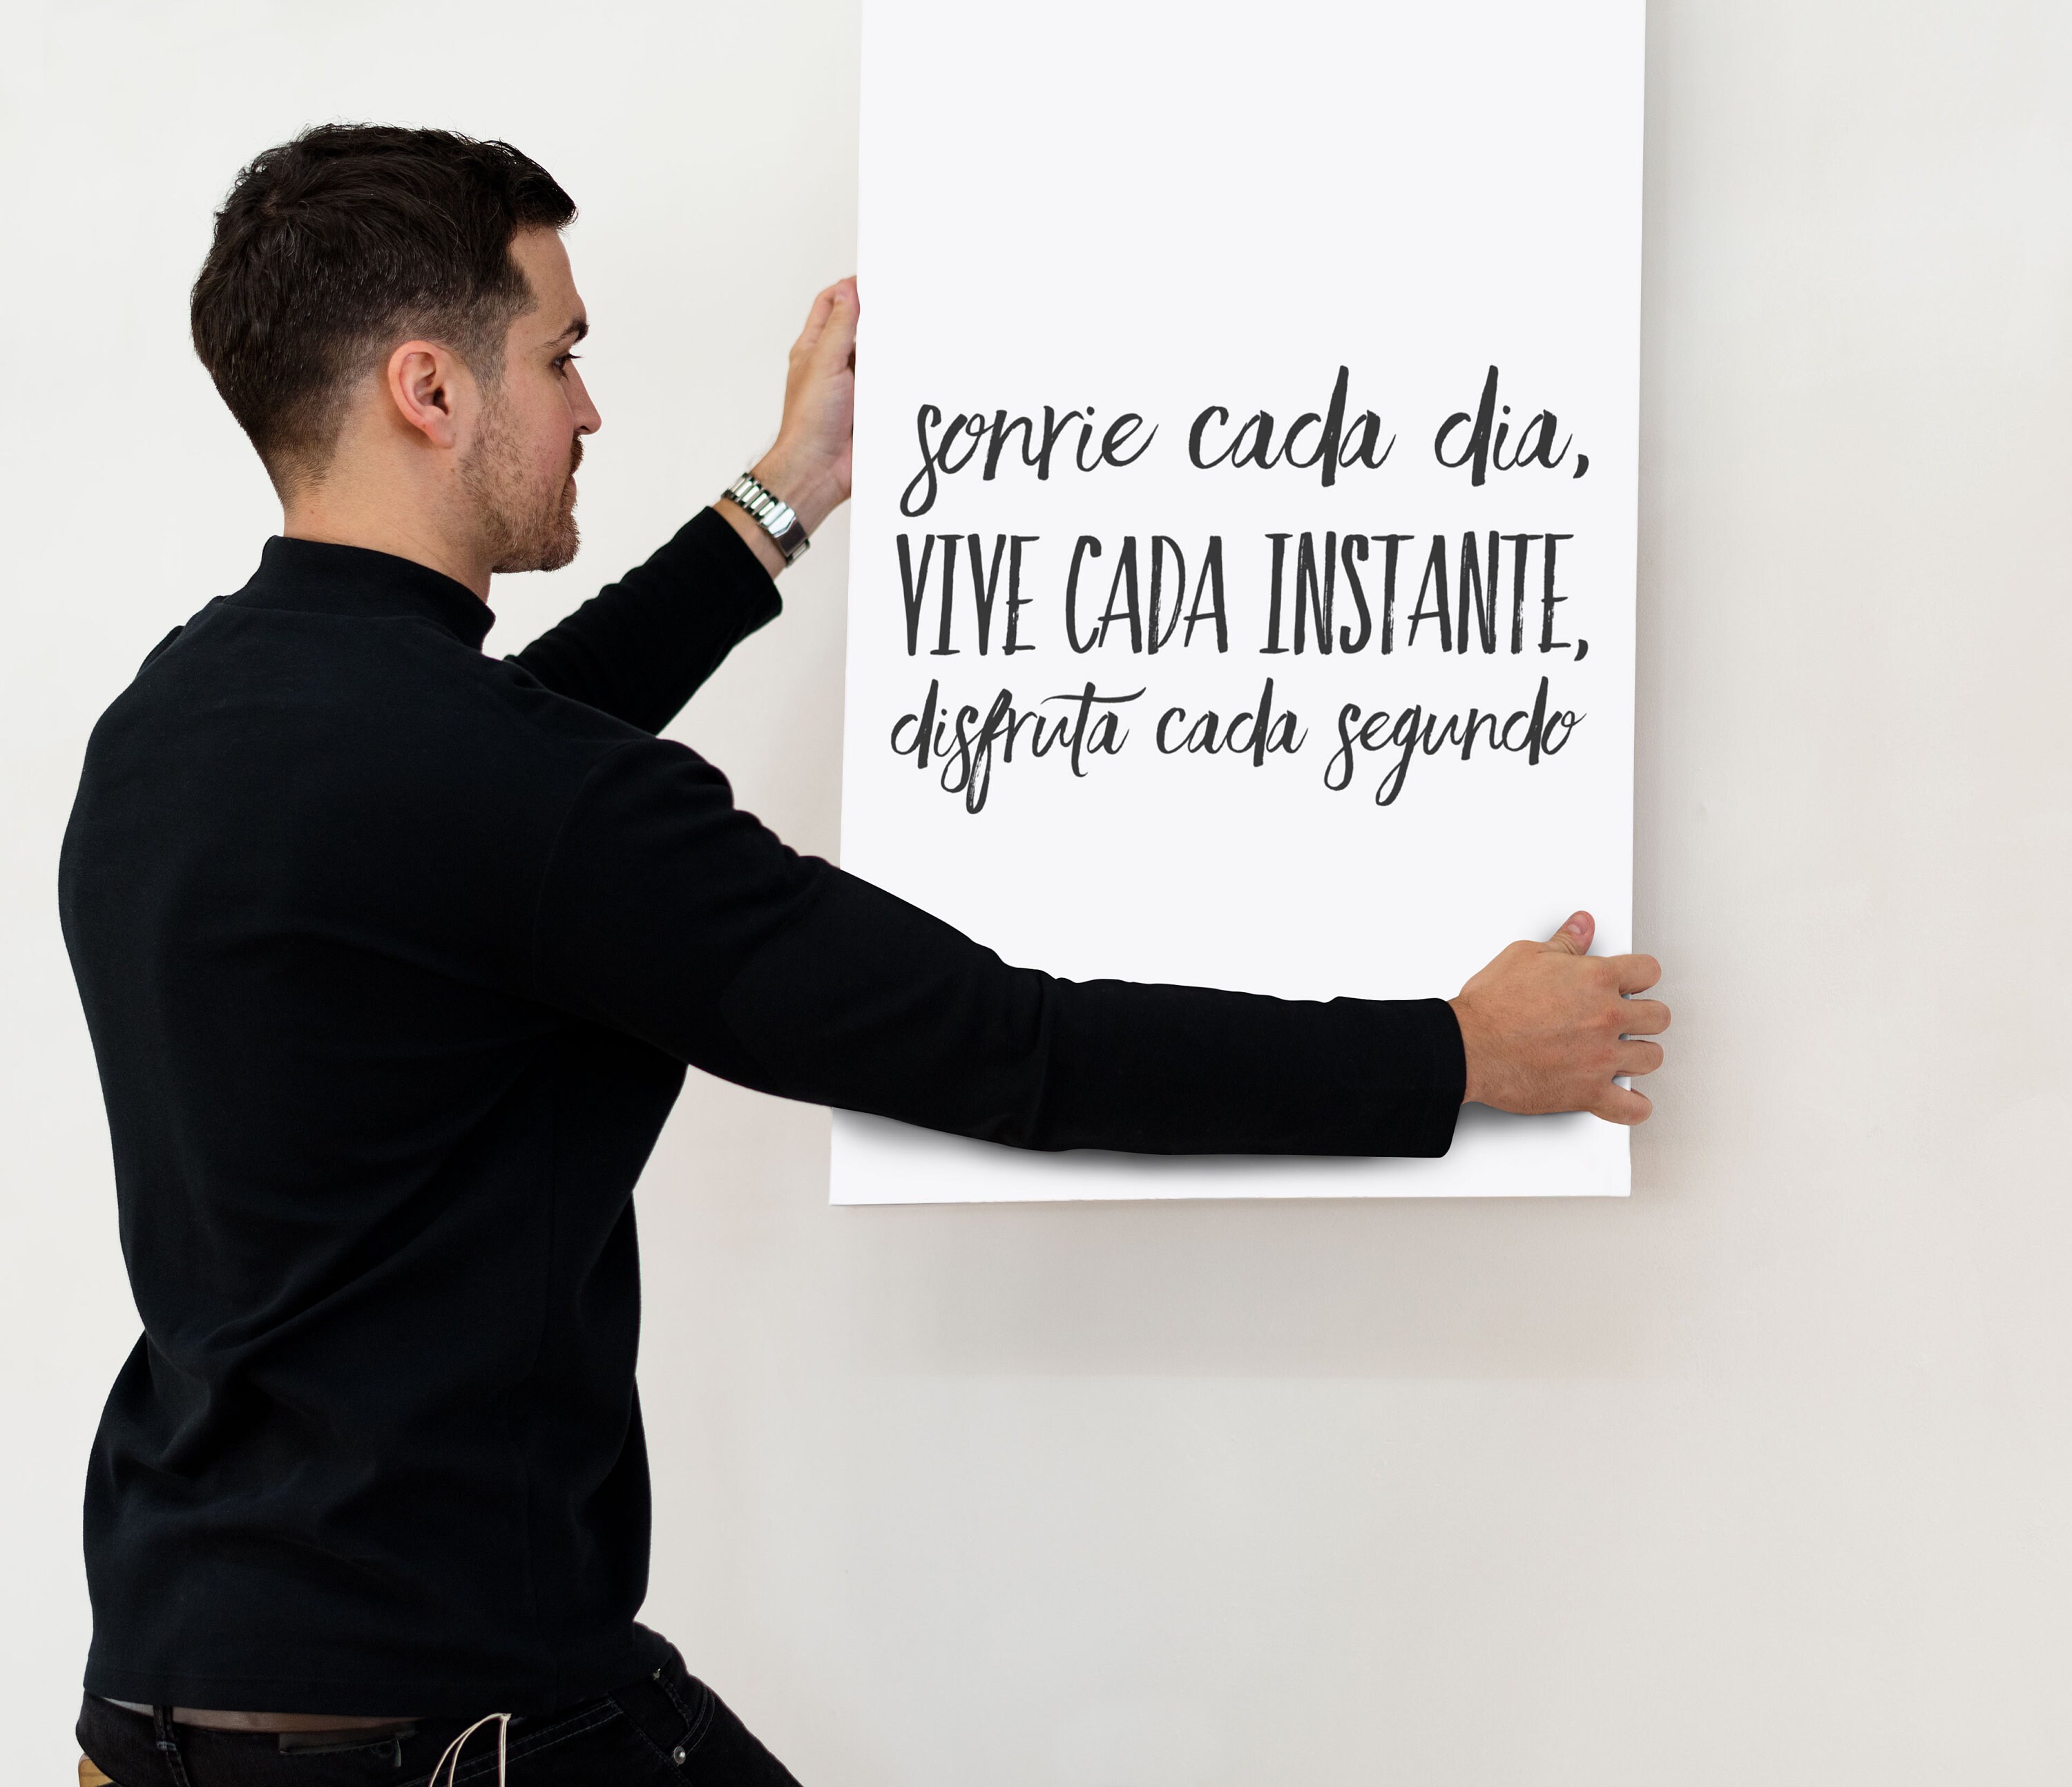 sonrie cada dia,
VIVE CADA INSTANTE,
disfruta cada segundo